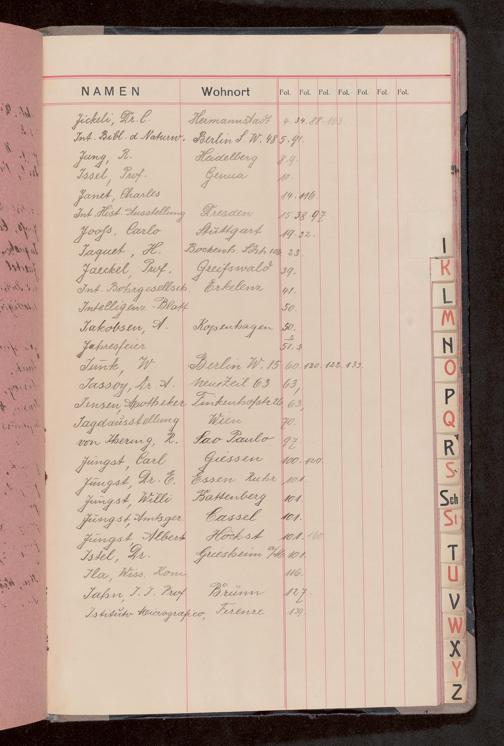 NAMEN Wohnort Fol. Fol. Fol. Fol. Fol. Fol. Fol.
Jickeli, Dr. C. Hermannstadt 4. 34. 88.
Int. Bibl. d. Naturw. Berlin S.W. 48 5. 91.
Jung, R. Heidelberg 8.9.
Issel, Prof. Genua 11.
Janet, Charles 14. 116.
Int. Hist. Ausstellung Dresden 15. 38. 97
Jooß, Carlo Stuttgart 19. 22.
Jaquet, H. Bockenh. 23.
Jaeckel, Prof. Greifswald 39.
Int. Bohrgesellsch. Erkelenz 41.
Intelligenz-Blatt 50.
Jakobsen, A. Kopenhagen 50.
Jahresfeier 51.
Junk, W Berlin W. 15 60. 120. 122. 133.
Jassoy, Dr. A. 63 63,
Jensen, Apotheker 63,
Jagdausstellung Wien 70.
von Ihering, R. Sao Paulo 97
Jüngst, Carl Giessen 100.
Jüngst, Dr. E. Essen Ruhr 101.
Jüngst, Willi Battenberg 101.
Jüngst, Amtsger. Cassel 101.
Jüngst, Albert Höchst 101.
Istel, Dr. Griesheim 101.
Ila, Wiss. Kom 116.
Jahn, J. J. Prof Brünn 127.
Istituto Micrografico, Firenze 139.
I
K
L
M
N
O
P
Q
R
S
Sch
St
T
U
V
W
X
Y
Z